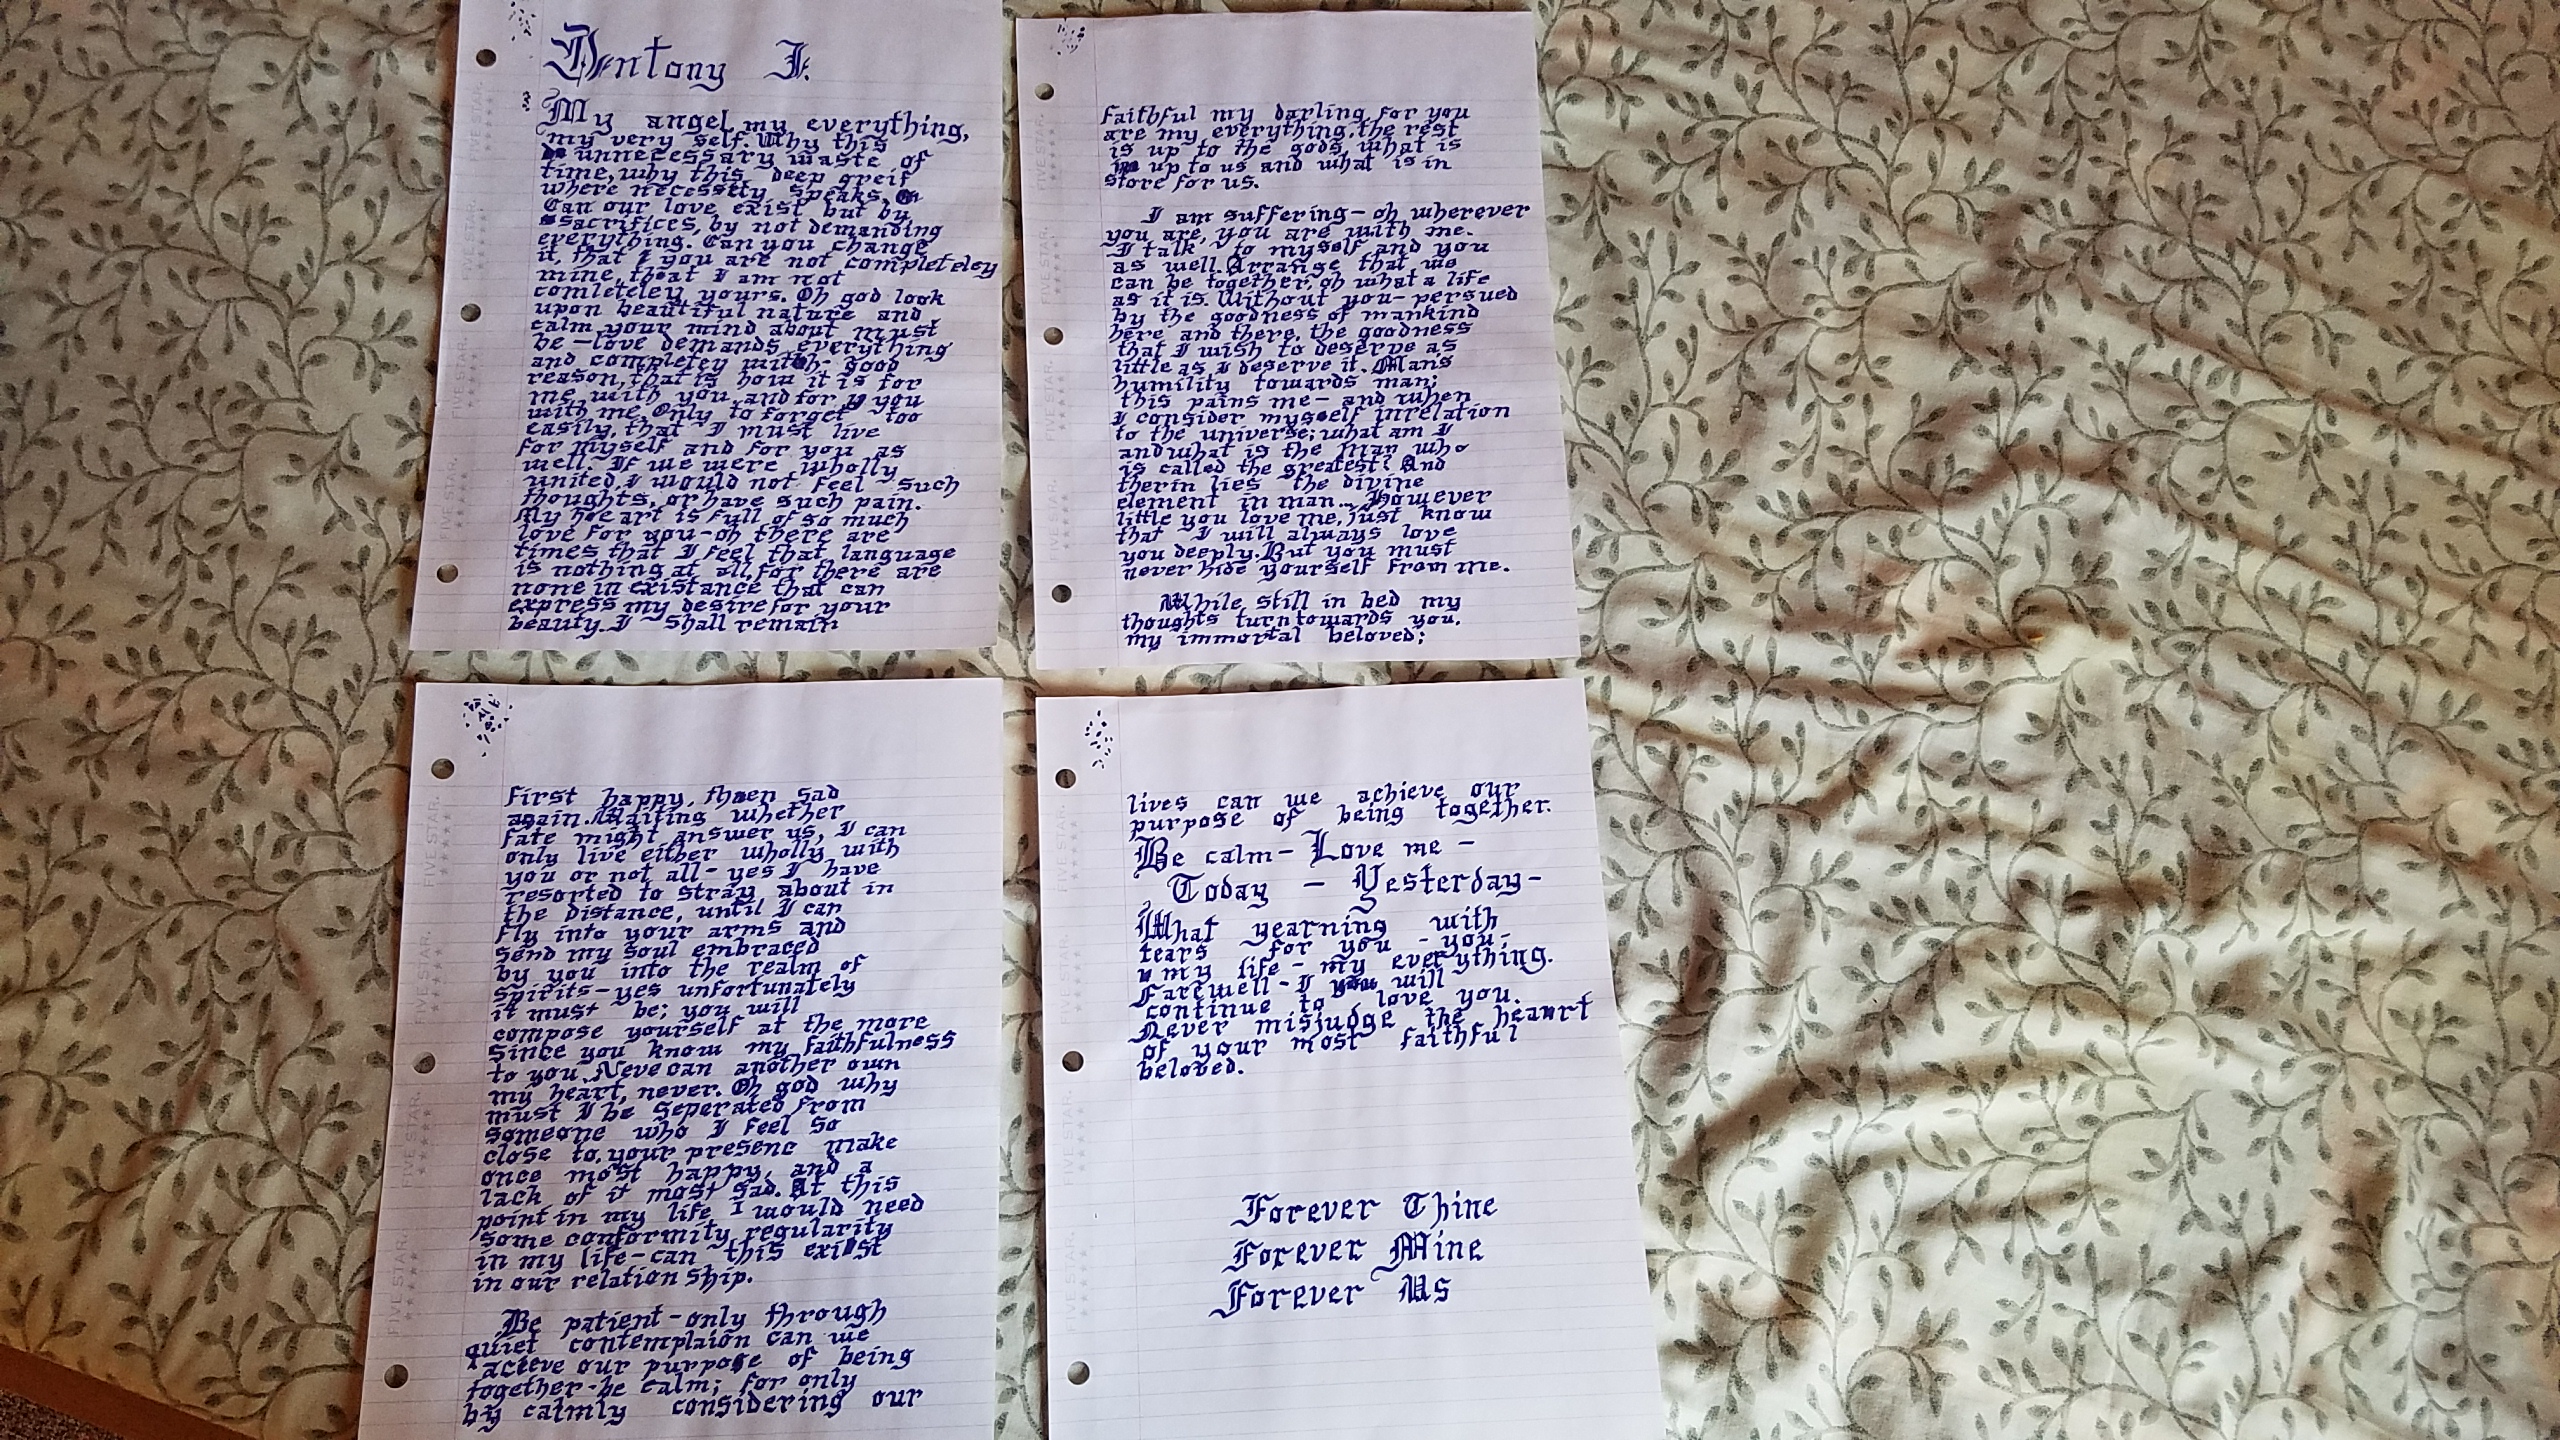 Dentony I.
My angel, my everything,
my very self. Why this
unnecessary waste of
time, why this deep greif
where necessity speaks.
Can our love exist but by
sacrifices, by not demanding
everything. Can you change
it, that you are not completeley
mine, that I am not
comleteley yours. Oh god look
upon beautiful nature and
calm your mind about must
be - love demands everything
and completey with good
reason, that is how it is for
me with you, and for you
with me. Only to forget too
easily, that I must live
for myself and for you as
well. If we were wholly
united, I would not feel such
thoughts, or have such pain.
My heart is full of so much
love for you - oh there are
times that I feel that language
is nothing at all, for there are
none in existance that can
express my desire for your
beauty. I shall remain
faithful my darling, for you
are my everything, the rest
is up to the gods, what is
up to us and what is in
store for us.
I am suffering - oh wherever
you are, you are with me.
I talk to myself and you
as well. Arrange that we
can be together, oh what a life
as it is. Without you - persued
by the goodness of mankind
here and there, the goodness
that I wish to deserve as
little as I deserve it. Mans
humility towards man;
this pains me - and when
I consider myself inrelation
to the universe; what am I
and what is the man who
is called the greatest? And
therin lies the divine
element in man... However
little you love me, just know
that I will always love
you deeply. But you must
never hide yourself from me.
While still in bed my
thoughts turn towards you.
my immortal beloved;
first happy, then sad
again. Waiting whether
fate might answer us, I can
only live either wholly with
you or not all - yes I have
resorted to stray about in
the distance, until I can
fly into your arms and
send my soul embraced
by you into the realm of
spirits - yes unfortunately
it must be; you will
compose yourself at the more
since you know my faithfulness
to you. Neve can another own
my heart, never. Oh god why
must I be seperated from
someone who I feel so
close to, your presenc make
once most happy, and a
lack of it most sad. At this
point in my life I would need
some conformity regularity
in my life - can this exist
in our relation ship.
Be patient - only through
quiet contemplaion can we
acieve our purpose of being
together - be calm; for only
by calmly considering our
lives can we achieve our
purpose of being together.
Be calm - Love me -
Today - Yesterday -
What yearning with
tears for you - you -
my life - my everything.
Farewell - I will
continue to love you.
Never misjudge the heart
of your most faithful
beloved.
Forever Thine
Forever Mine
Forever Us
FIVE STAR.
FIVE STAR.
FIVE STAR.
FIVE STAR.
FIVE STAR.
FIVE STAR.
FIVE STAR.
FIVE STAR.